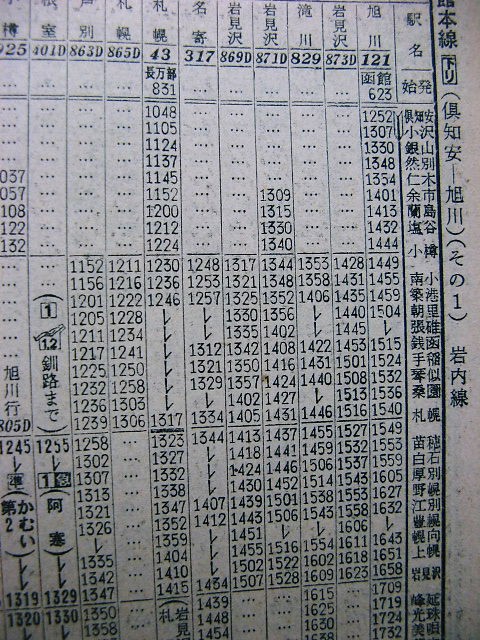 館本線 下り (倶知安―旭川) (その1) 岩内線
樽 根室 別 札幌 札幌 名寄 岩見沢 岩見沢 滝川 岩見沢 旭川 駅名
925 401D 863D 865D 43 317 869D 871D 829 873D 121
長万部 函館 始発
831 623
… … … … 1048 … … … … … 1252 倶知安
… … … … 1105 … … … … … 1307 小沢
… … … … 1124 … … … … … 1330 銀山
… … … … 1137 … … … … … 1348 然別
037 … … … 1145 … … … … … 1354 仁木
057 … … … 1152 … … 1309 … … 1401 余市
108 … … … 1200 … … 1315 … … 1413 蘭島
122 … … … 1212 … … 1330 … … 1432 塩谷
132 … … … 1224 … … 1340 … … 1444 小樽
… 1152 1211 1230 1248 1317 1344 1353 1428 1449
… 1156 1216 1236 1253 1321 1348 1358 1431 1455 南小
… 1201 1222 1246 1257 1325 1352 1406 1435 1459 築港
1205 1228 1330 1356 1440 1504 朝里
1211 1234 1335 1402 1445 張碓
1217 1241 1312 1342 1408 1422 1453 1515 銭函
1225 1250 1321 1350 1416 1431 1501 1524 手稲
1232 1258 1329 1357 1424 1440 1508 1532 琴似
1236 1303 1402 1427 1513 1536 桑園
805D 1239 1306 1317 1334 1405 1431 1446 1516 1540 札幌
1245 1255 1258 … 1323 1344 1413 1437 1455 1527 1549 苗穂
1302 … 1327 1418 1441 1459 1532 1553 白石
1307 … 1332 1424 1446 1506 1537 1559 厚別
1313 … 1338 1430 1451 1514 1543 1605 野幌
1321 … 1347 1407 1439 1501 1538 1553 1627 江別
1326 … 1352 1412 1443 1506 1543 1558 1632 豊幌
1359 1451 1606 幌向
1335 … 1404 1455 1516 1554 1611 1643 上幌
1342 … 1410 1502 1522 1602 1618 1651
1319 1329 1347 … 1415 1434 1507 1528 1609 1623 1658 岩見沢
1320 1330 1350 … 1439 … … 1615 … 1709 峰延
… 1448 … … 1624 … 1719 光珠
1358 … … … … 1732 美唄
旭川行
1 1,2 釧路まで
準 かむい 第2
1 急 阿寒
札 岩見